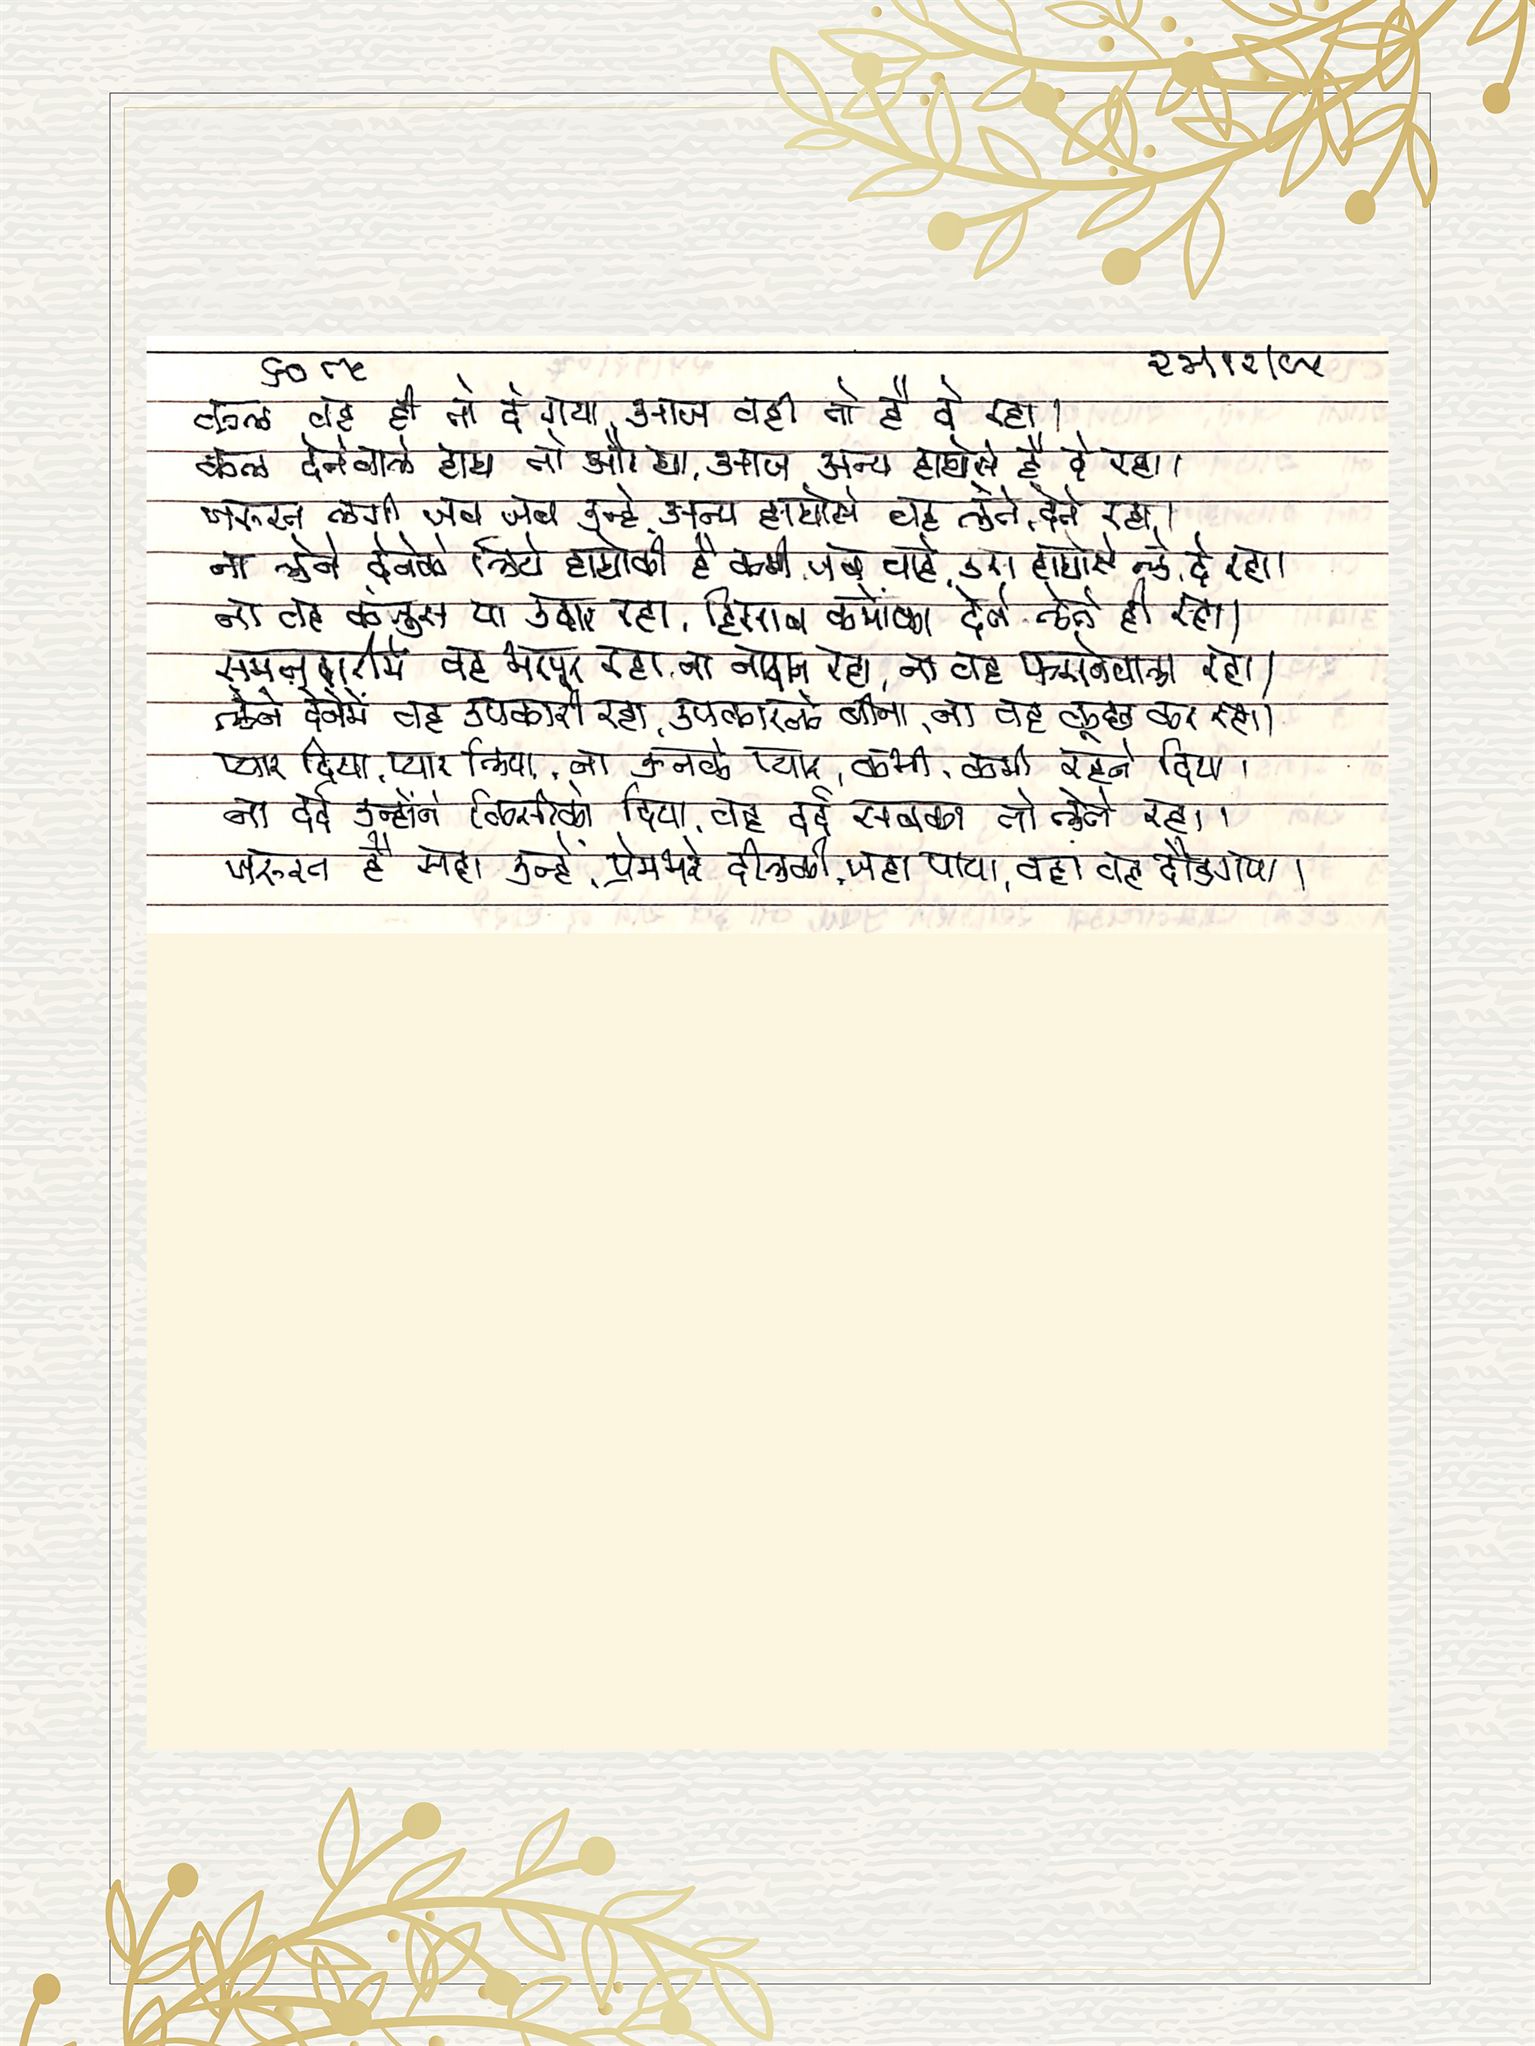 कल वह ही तो दे गया, आज वही तो है दे रहा।
कल देनेवाले हाथ तो और था, आज अन्य हाथोंसे है दे रहा।
जरूरत लगी जब जब उन्हे, अन्य हाथोसे वह लेते, देते रहा।
ना लेने देनेके लिये हाथोकी है कमी, जब चाहे, उस हाथोसे ले, दे रहा।
ना वह कंजुस या उदार रहा, हिसाब कर्मोका देते लेते ही रहा।
समजदारीमें वह भरपूर रहा, ना नादान रहा, ना वह फसानेवाला रहा।
लेने देनेमें वह उपकारी रहा, उपकारके बीना, ना वह कूछ कर रहा।
प्यार दिया, प्यार लिया, ना उनके प्यार, कभी, कमी रहने दिया।
ना दर्द उन्होंने किसीको दिया, वह दर्द सबका तो लेते रहा।
जरूरत है सदा उन्हे, प्रेमभरे दीलकी, जहा पाया, वहां वह दौडगया।